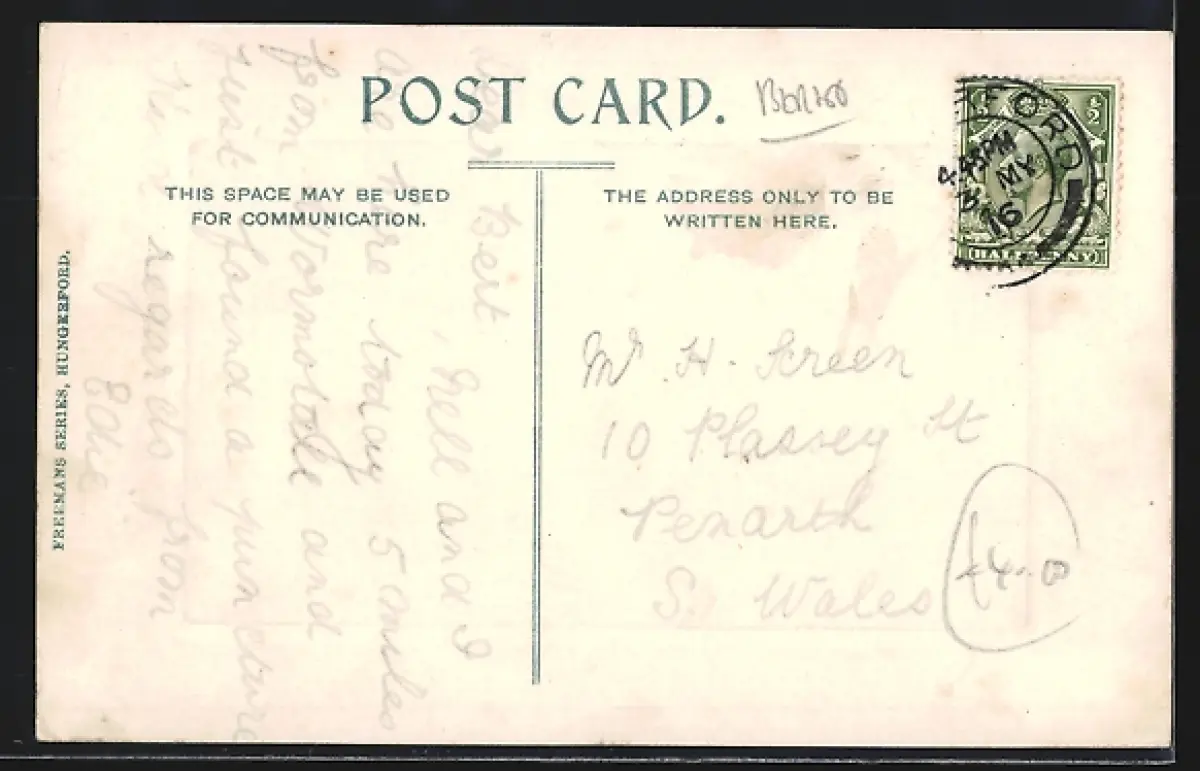 POST CARD.
THIS SPACE MAY BE USED
FOR COMMUNICATION.
THE ADDRESS ONLY TO BE
WRITTEN HERE.
FREEMANS SERIES, HUNGERFORD.
Dear Bert
, Nell and I
are here today 5 miles
from and
just found a puncture
regards from
Edie
Mr H. Screen
10 Plassey St
Penarth
S. Wales
£4.00
RFORD
4.45PM
MY
16
½
HALFPENNY